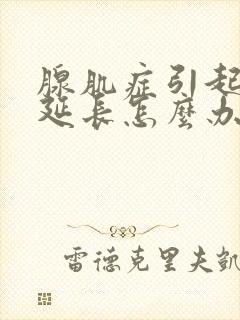 腺肌症引起
延長怎麼办
雷德克里夫凱